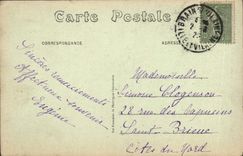 Carte Postale
CORRESPONDANCE
ADRESSE
Sincères remerciements
Affectueux souvenir
Eugénie
Mademoiselle
Simone
28 rue des Capucins
Saint-Brieuc
Côtes du Nord